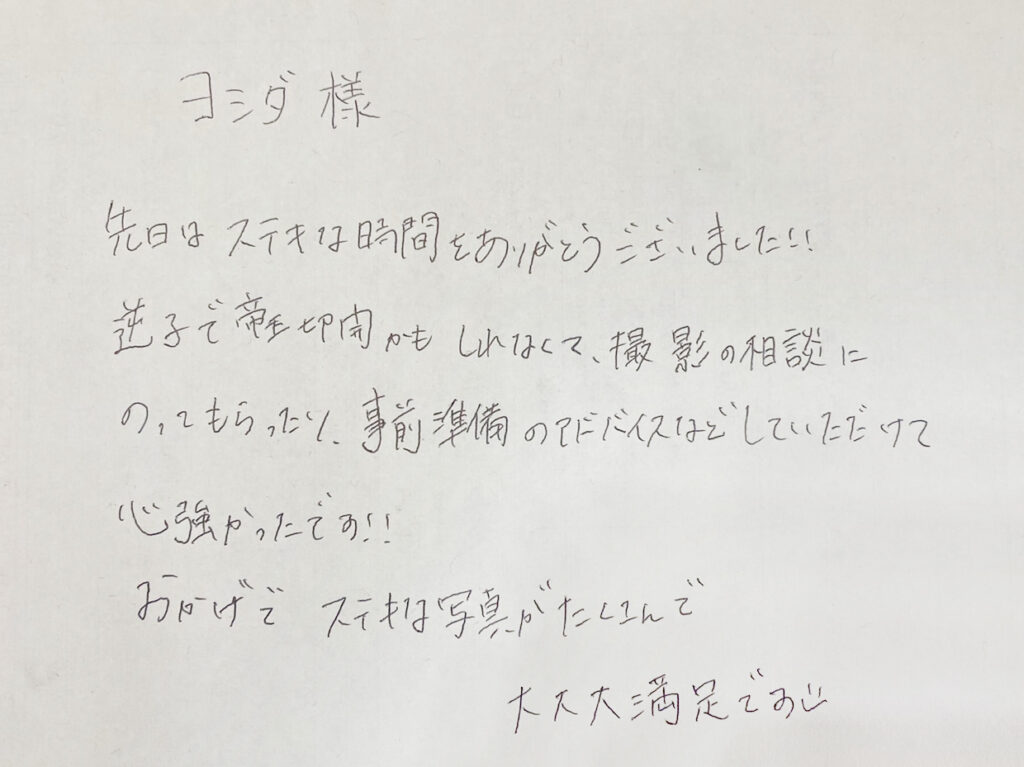 ヨシダ様
先日はステキな時間をありがとうございました!!
逆子で帝王切開かもしれなくて、撮影の相談に
のってもらったり、事前準備のアドバイスなどしていただけて
心強かったです!!
おかげでステキな写真がたくさんで
大大大満足です